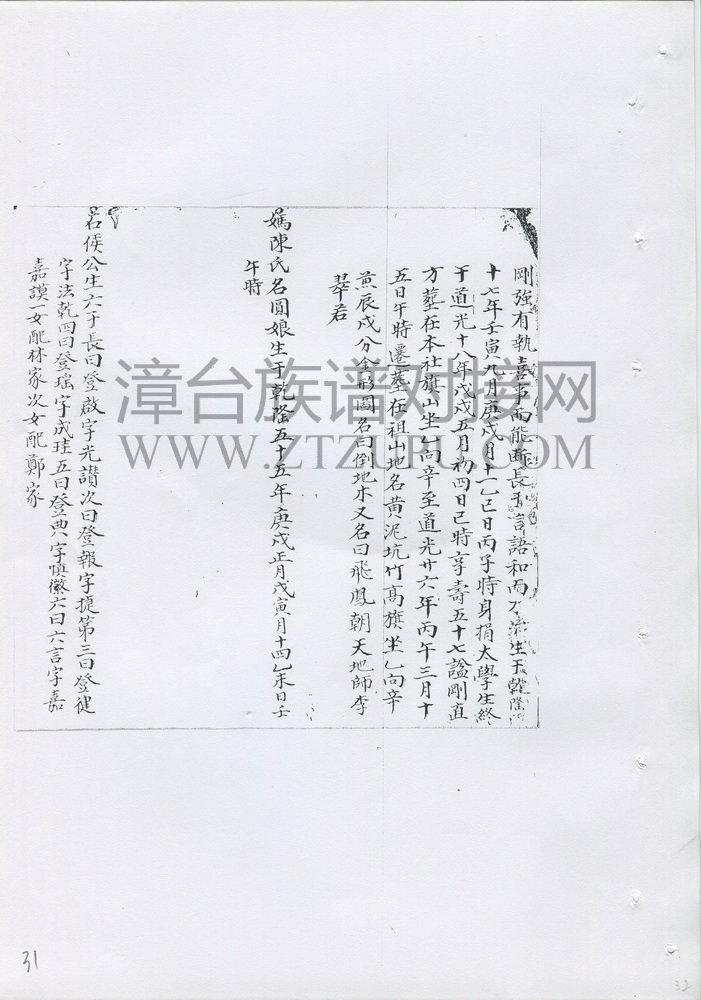 剛強有執喜事而能斷長于言語和而不
生于乾隆四
十七年壬寅九月庚戌月十一乙巳日丙子時身捐太學生終
于道光十八年戊戌五月初四日己時享壽五十七謚剛直
方葬在本社旗山坐乙向辛至道光廿六年丙午三月十
五日午時遷葬在祖山地名黃泥坑竹高旗坐乙向辛
兼辰戌分金形圖名曰倒地木又名曰飛鳳朝天地師李
翠若
媽陳氏名圓娘生于乾隆五十五年庚戌正月戊寅月十四乙未日壬
午時
石侯公生六子長曰登啟字光讚次曰登報字捷第三曰登健
字法乾四曰登瑶字成珪五曰登典字慎徽六曰六言字嘉
嘉謨一女配林家次女配鄭家
漳台族谱对接网
WWW.ZTZUPU.COM
31
32